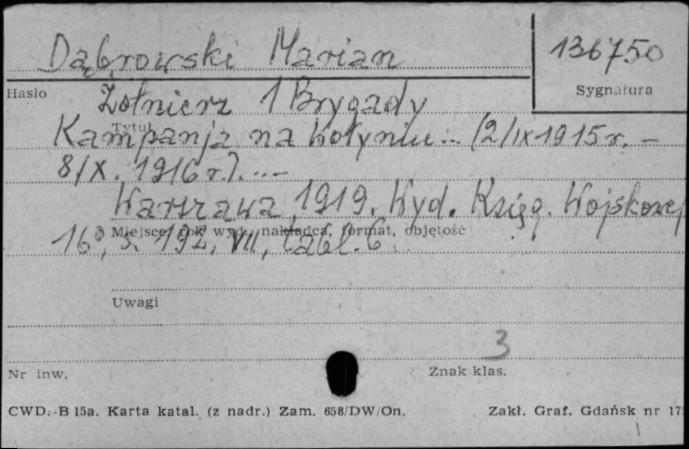 Dąbrowski Marian
136750
Hasło
Sygnatura
Żołnierz 1 Brygady
Tytuł
Kampanja na Wołyniu... (2/IX 1915 r. -
8/X. 1916 r.). ... -
Warszawa, 1919. Wyd. Księg. Wojskowej
Miejsce, rok wyd., nakładca, format, objętość
16°, s. 192, VII, tabl. 6.
Uwagi
3
Nr inw.
Znak klas.
CWD. B 15a. Karta katal. (z nadr.) Zam. 658/DW/On.
Zakł. Graf. Gdańsk nr 17